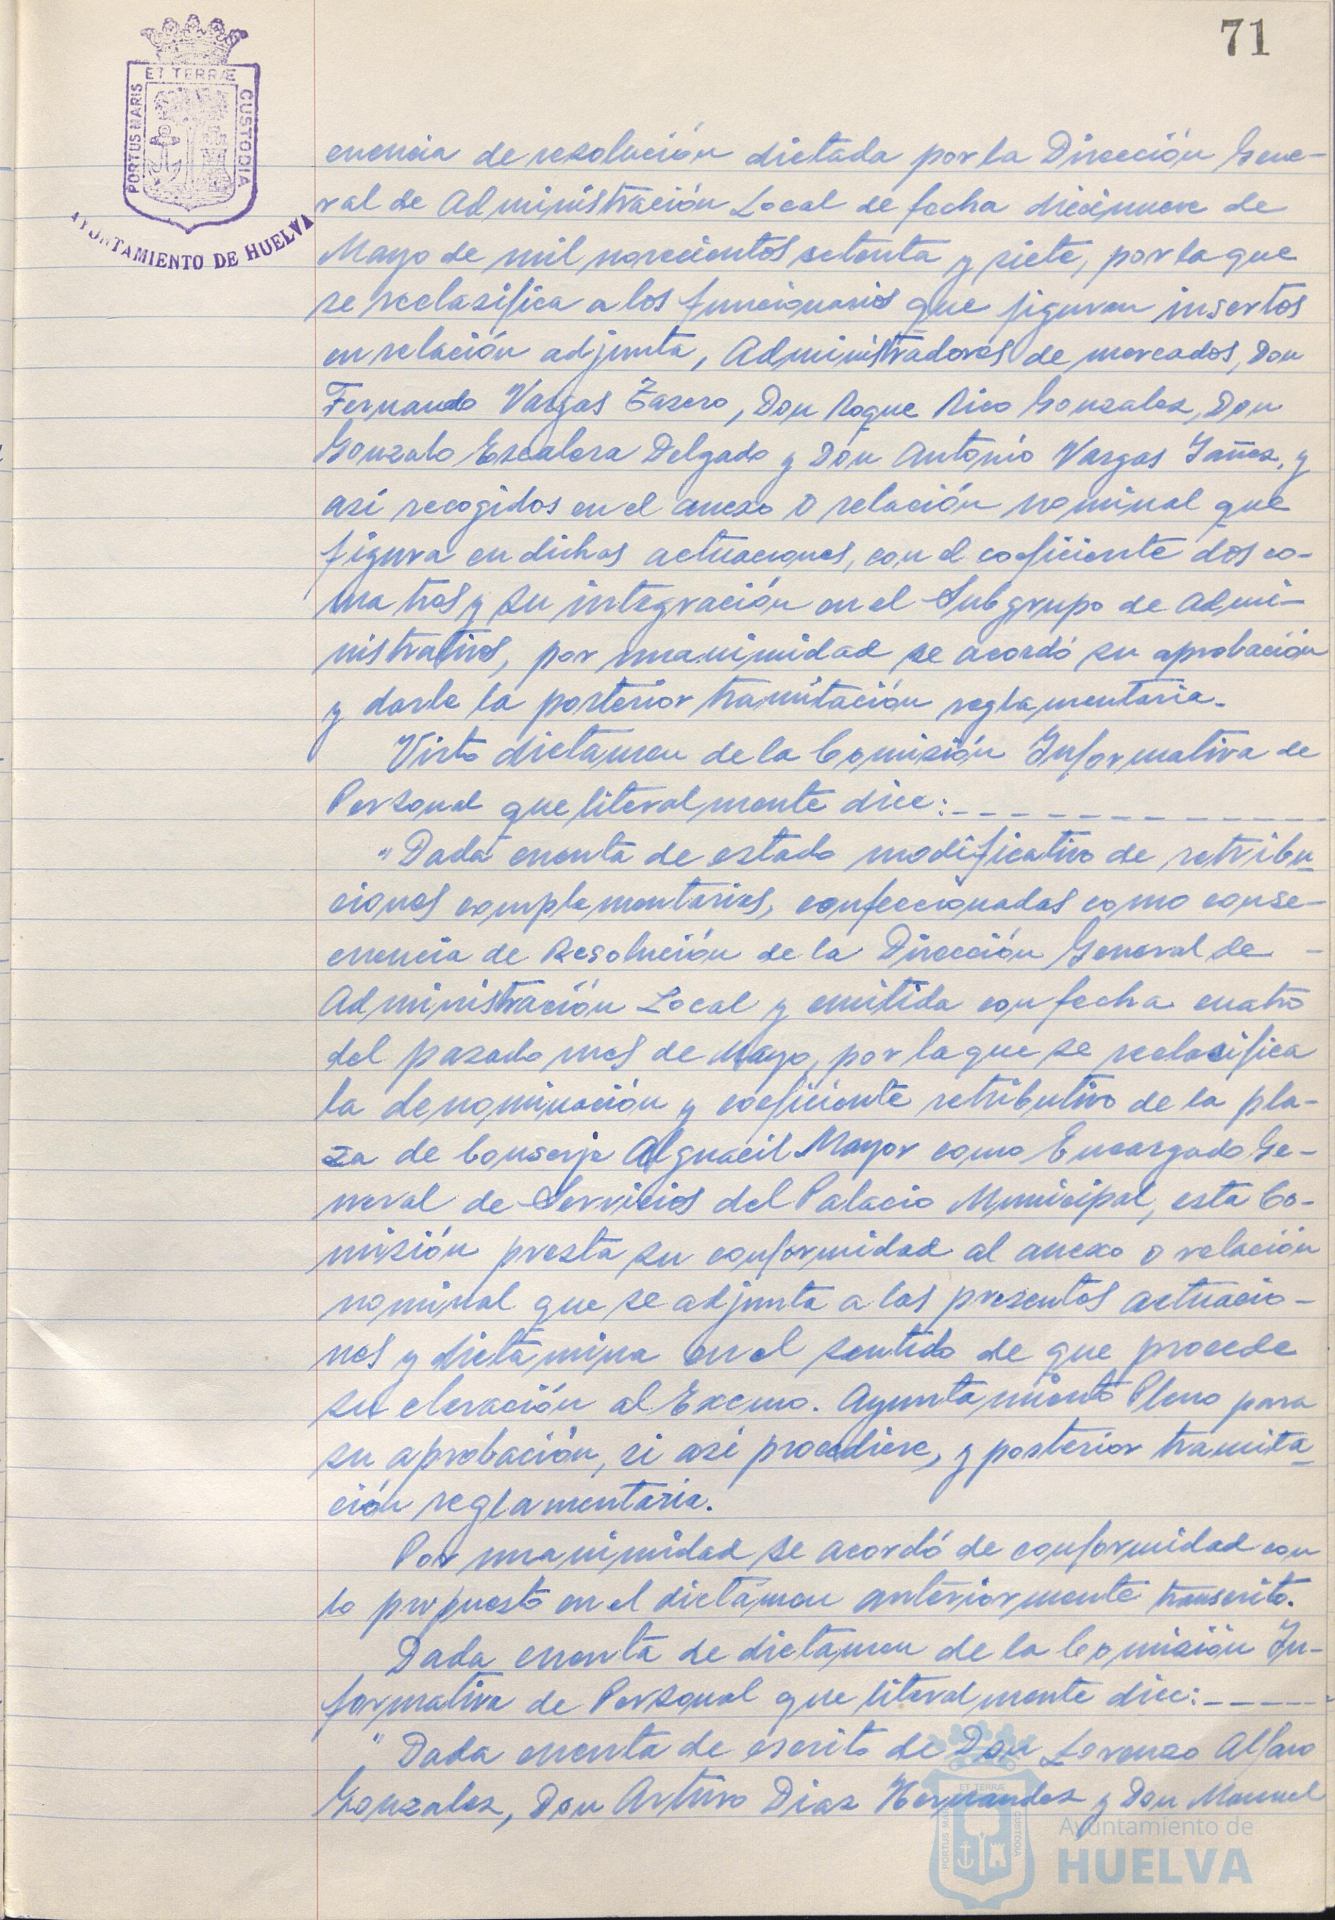 71
ET TERRÆ
PORTUS MARIS
CUSTODIA
AYUNTAMIENTO DE HUELVA
cuencia de resolución dictada por la Dirección Gene-
ral de Administración Local de fecha diecinueve de
Mayo de mil novecientos setenta y siete, por la que
se reclasifica a los funcionarios que figuran insertos
en relación adjunta, Administradores de mercados, Don
Fernando Vargas Zasero, Don Roque Rico Gonzalez, Don
Gonzalo Escalera Delgado y Don Antonio Vargas Yañez, y
asi recogidos en el anexo o relación nominal que
figura en dichas actuaciones, con el coeficiente dos co-
ma tres y su integración en el Subgrupo de Admi-
nistrativos, por unanimidad se acordó su aprobación
y darle la posterior tramitación reglamentaria.
Visto dictamen de la Comisión Informativa de
Personal que literalmente dice:_ _ _ _ _ _ _ _ _ _ _ _
"Dada cuenta de estado modificativo de retribu-
ciones complementarias, confeccionadas como conse-
cuencia de Resolución de la Dirección General de -
Administración Local y emitida con fecha cuatro
del pasado mes de Mayo, por la que se reclasifica
la denominación y coeficiente retributivo de la pla-
za de Conserje Alguacil Mayor como Encargado Ge-
neral de Servicios del Palacio Municipal, esta Co-
misión presta su conformidad al anexo o relación
nominal que se adjunta a las presentes actuacio-
nes y dictamina en el sentido de que procede
su elevación al Excmo. Ayuntamiento Pleno para
su aprobación, si asi procediere, y posterior tramita-
ción reglamentaria.
Por unanimidad se acordó de conformidad con
lo propuesto en el dictamen anteriormente transcrito.
Dada cuenta de dictamen de la Comisión In-
formativa de Personal que literalmente dice:_ _ _ _
"Dada cuenta de escrito de Don Lorenzo Alfaro
Gonzalez, Don Arturo Diaz Hernandez y Don Manuel
ET TERRÆ
PORTUS MARIS
CUSTODIA
Ayuntamiento de
HUELVA